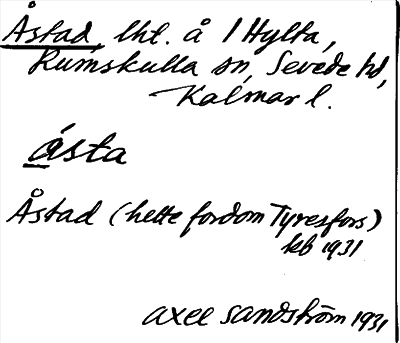 Åstad, lht. å 1 Hylta,
Rumskulla sn, Sevede hd,
Kalmar l.
åsta
Åstad (hette fordom Tyresfors)
kb 1931
Axel Sandström 1931